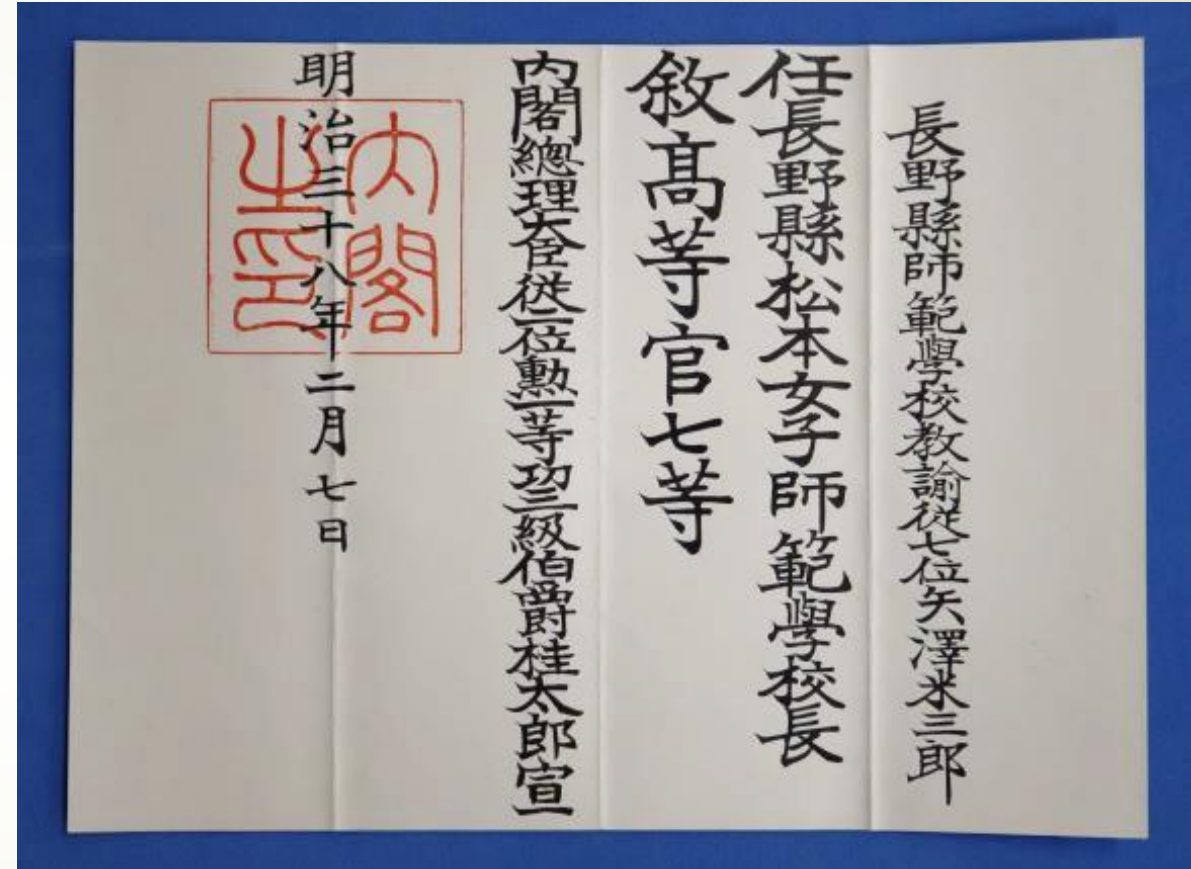 長野縣師範學校教諭從七位矢澤米三郎
任長野縣松本女子師範學校長
敘髙等官七等
內閣總理大臣從二位勳一等功三級伯爵桂太郎宣
明治三十八年二月七日
內閣之印